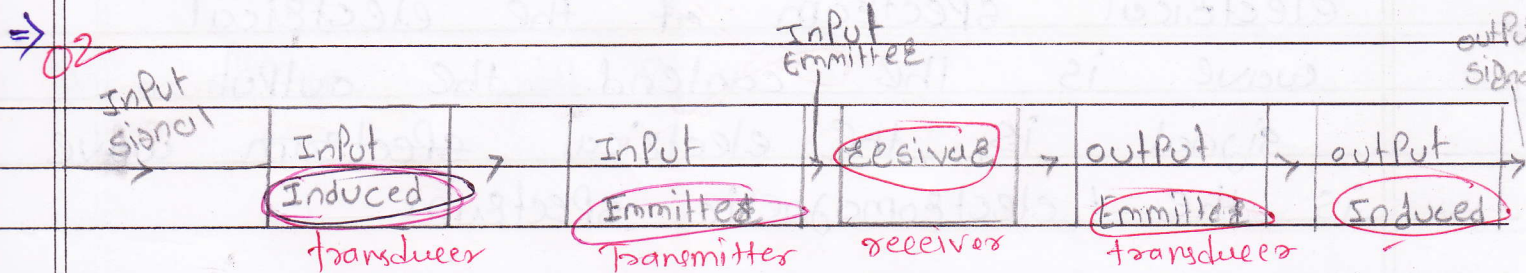 => 02
Input
Emmitter
output
Input
signal
Input
Induced
Input
Emmitter
resivar
output
Emmitter
output
Induced
transducer
Transmitter
receiver
transducer